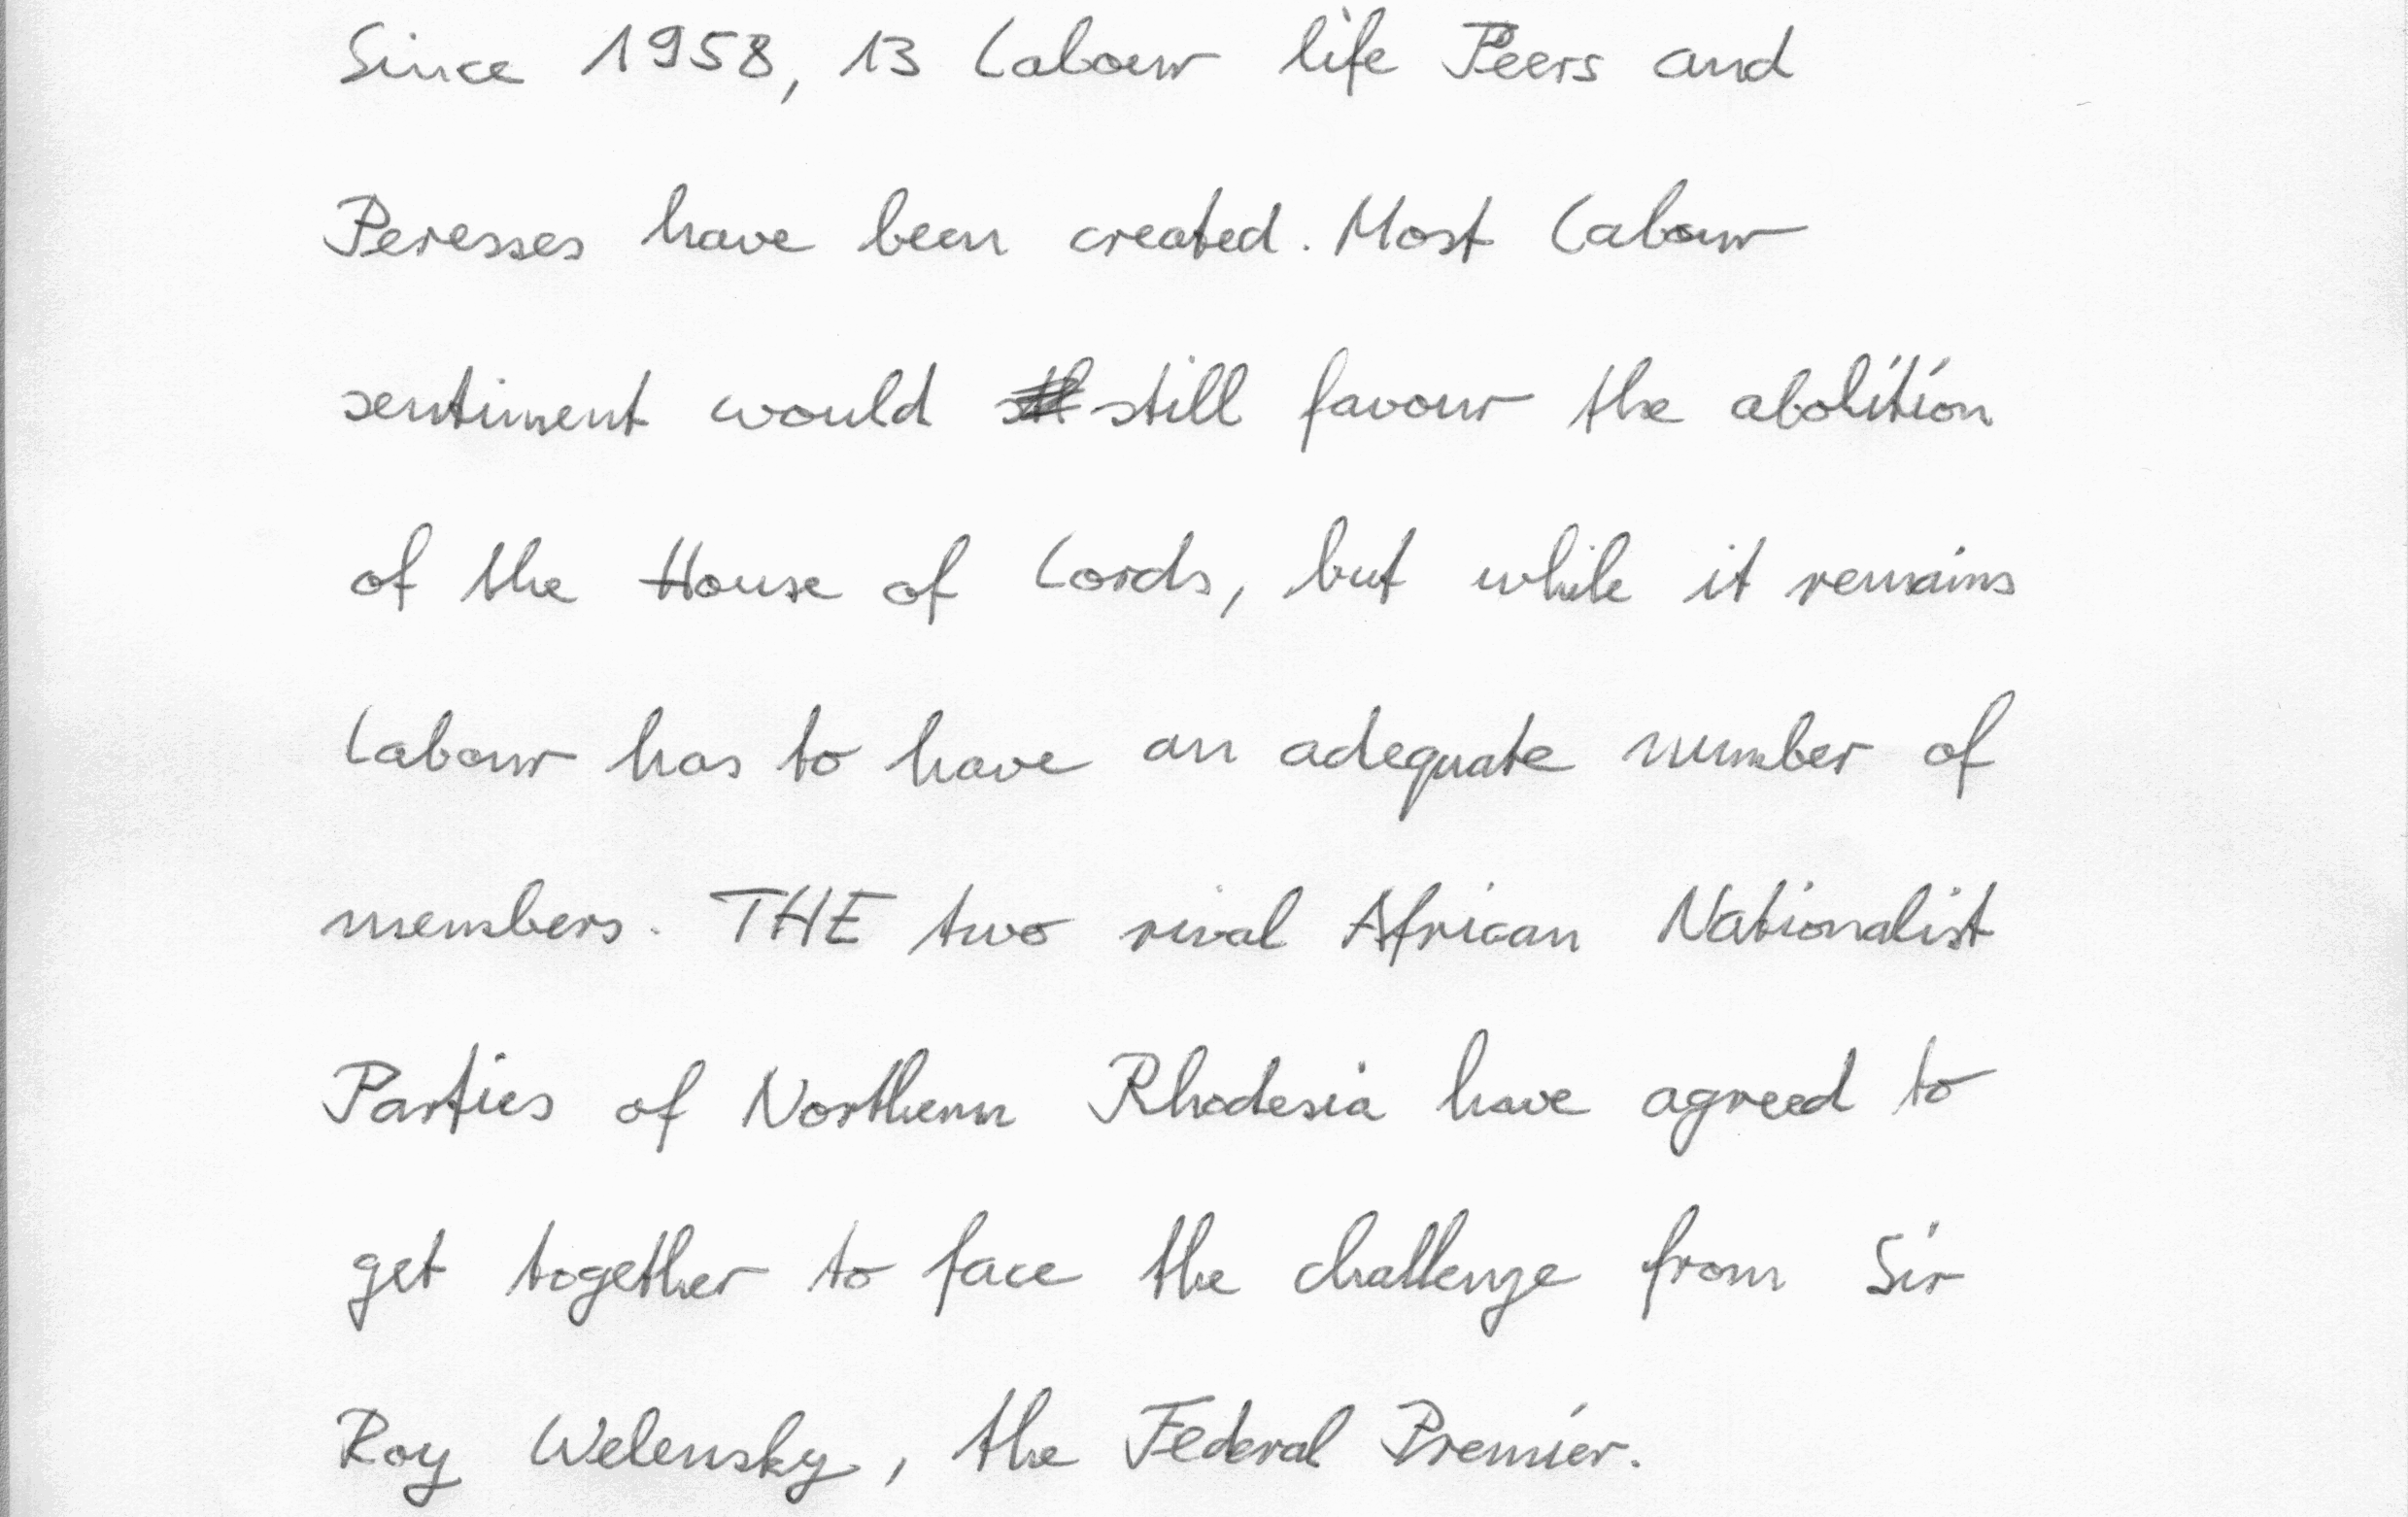 Since 1958, 13 Labour life Peers and
Peresses have been created. Most Labour
sentiment would still favour the abolition
of the House of Lords, but while it remains
Labour has to have an adequate number of
members. THE two rival African Nationalist
Parties of Northern Rhodesia have agreed to
get together to face the challenge from Sir
Roy Welensky, the Federal Premier.